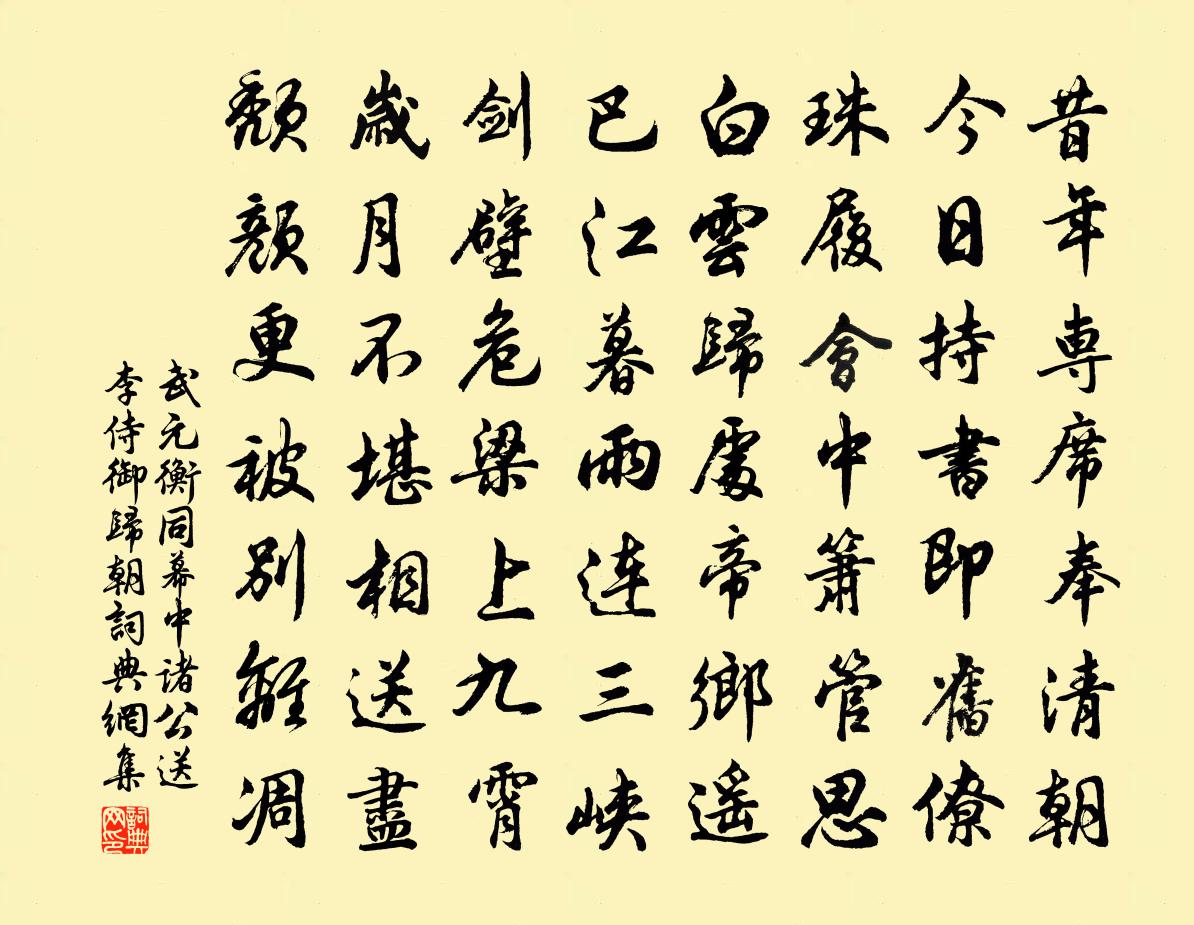 昔年専席奉清朝
今日持書即舊僚
珠履會中簫管思
白雲歸處帝鄉遥
巴江暮雨连三峡
剑壁危梁上九霄
歲月不堪相送盡
頽顔更被別離凋
武元衡同幕中諸公送
李侍御歸朝詞典網集
詞典
网印